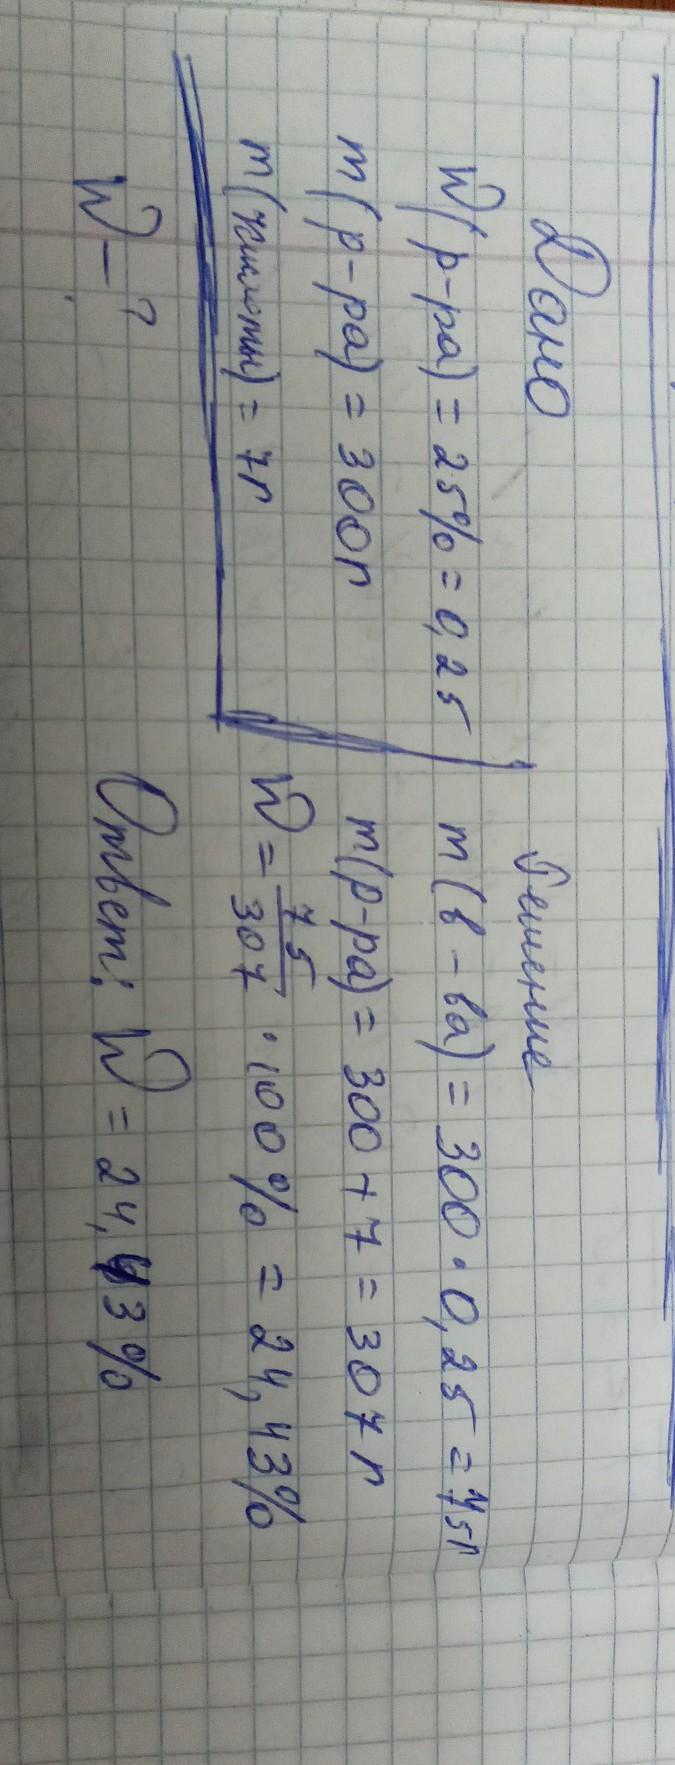 Дано
W(р-ра) = 25% = 0,25
m(р-ра) = 300г
m(кислоты) = 7г
W - ?
Решение
m(в-ва) = 300 · 0,25 = 75г
m(р-ра) = 300 + 7 = 307г
W = 75/307 · 100% = 24,43%
Ответ: W = 24,43%